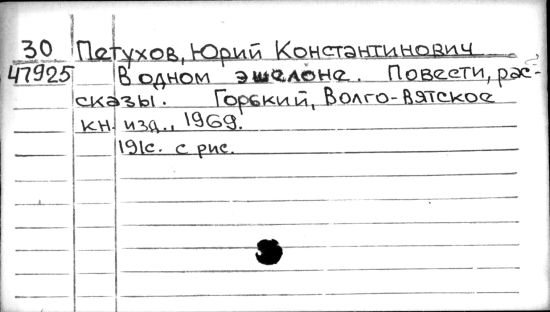 30 Петухов, Юрий Константинович
47925 В одном эшелоне. Повести, рас-
сказы. Горький, Волго-Вятское
кн. изд., 1969.
191с. с рис.